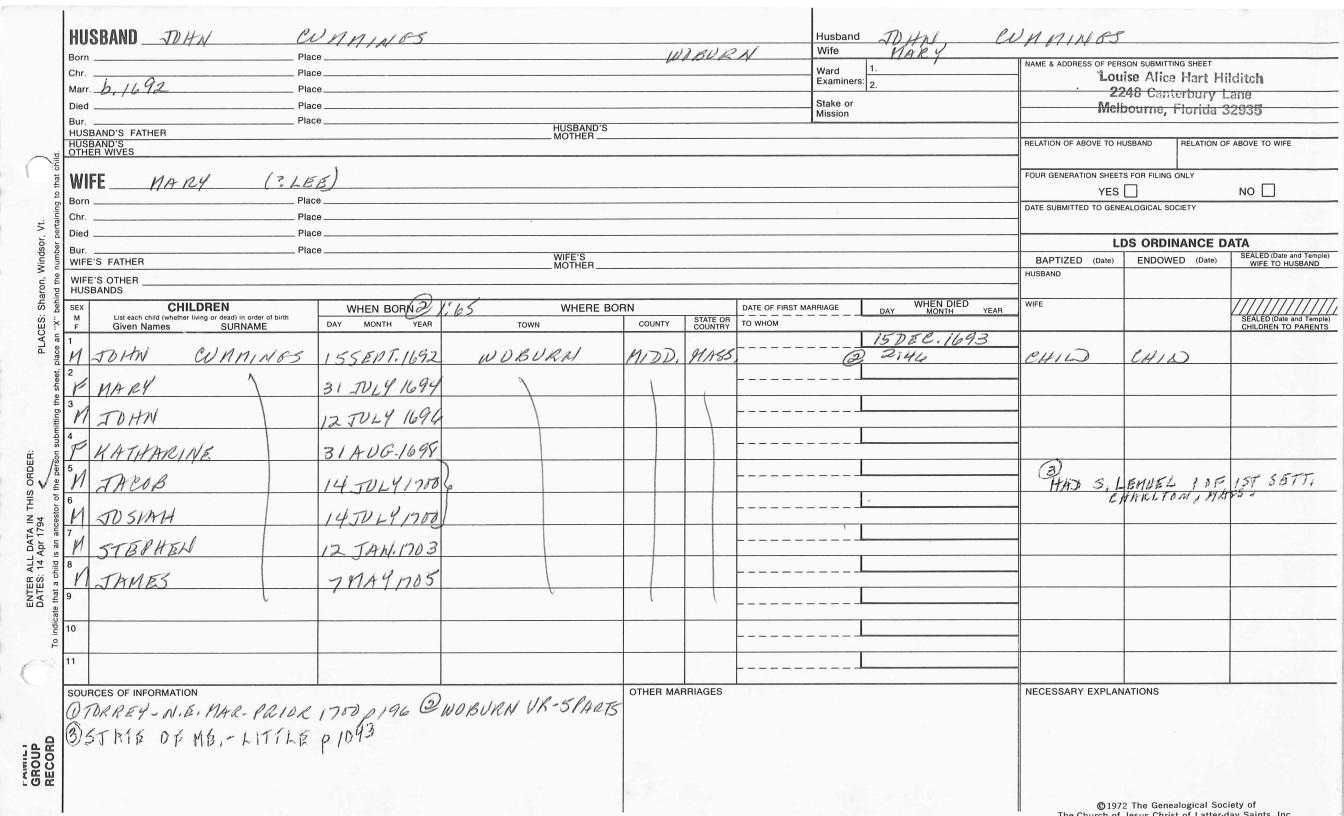 HUSBAND JOHN CUMMINGS
Husband JOHN CUMMINGS
Wife MARY
Born Place WOBURN
Chr. Place
Marr. b. 1692 Place
Died Place
Bur. Place
HUSBAND'S FATHER HUSBAND'S MOTHER
HUSBAND'S OTHER WIVES
Ward Examiners: 1.
2.
Stake or Mission
NAME & ADDRESS OF PERSON SUBMITTING SHEET
Louise Alice Hart Hilditch
2248 Canterbury Lane
Melbourne, Florida 32935
RELATION OF ABOVE TO HUSBAND RELATION OF ABOVE TO WIFE
FOUR GENERATION SHEETS FOR FILING ONLY
YES NO
DATE SUBMITTED TO GENEALOGICAL SOCIETY
WIFE MARY (?LEE)
Born Place
Chr. Place
Died Place
Bur. Place
WIFE'S FATHER WIFE'S MOTHER
WIFE'S OTHER HUSBANDS
LDS ORDINANCE DATA
BAPTIZED (Date) ENDOWED (Date) SEALED (Date and Temple) WIFE TO HUSBAND
HUSBAND
WIFE
SEALED (Date and Temple) CHILDREN TO PARENTS
SEX M F
CHILDREN
List each child (whether living or dead) in order of birth
Given Names SURNAME
WHEN BORN ② 1:65
DAY MONTH YEAR
WHERE BORN
TOWN COUNTY STATE OR COUNTRY
DATE OF FIRST MARRIAGE
TO WHOM
WHEN DIED
DAY MONTH YEAR
1 M JOHN CUMMINGS 15 SEPT. 1692 WOBURN MIDD. MASS. 15 DEC. 1693 ② 2:46 CHILD CHILD
2 F MARY 31 JULY 1694
3 M JOHN 12 JULY 1696
4 F KATHARINE 31 AUG. 1698
5 M JACOB 14 JULY 1700
③ HAD S. LEMUEL 1 OF 1ST SETT. CHARLTON, MASS.
6 M JOSIAH 14 JULY 1700
7 M STEPHEN 12 JAN. 1703
8 M JAMES 7 MAY 1705
9
10
11
SOURCES OF INFORMATION
① TORREY - N.E. MAR. PRIOR 1700 p196 ② WOBURN VR - 5 PARTS
③ STATE OF ME. - LITTLE p 1093
OTHER MARRIAGES
NECESSARY EXPLANATIONS
©1972 The Genealogical Society of
The Church of Jesus Christ of Latter-day Saints, Inc.
ENTER ALL DATA IN THIS ORDER:
DATES: 14 Apr 1794 PLACES: Sharon, Windsor, Vt.
To indicate that a child is an ancestor of the person submitting the sheet, place an "X" behind the number pertaining to that child.
FAMILY GROUP RECORD